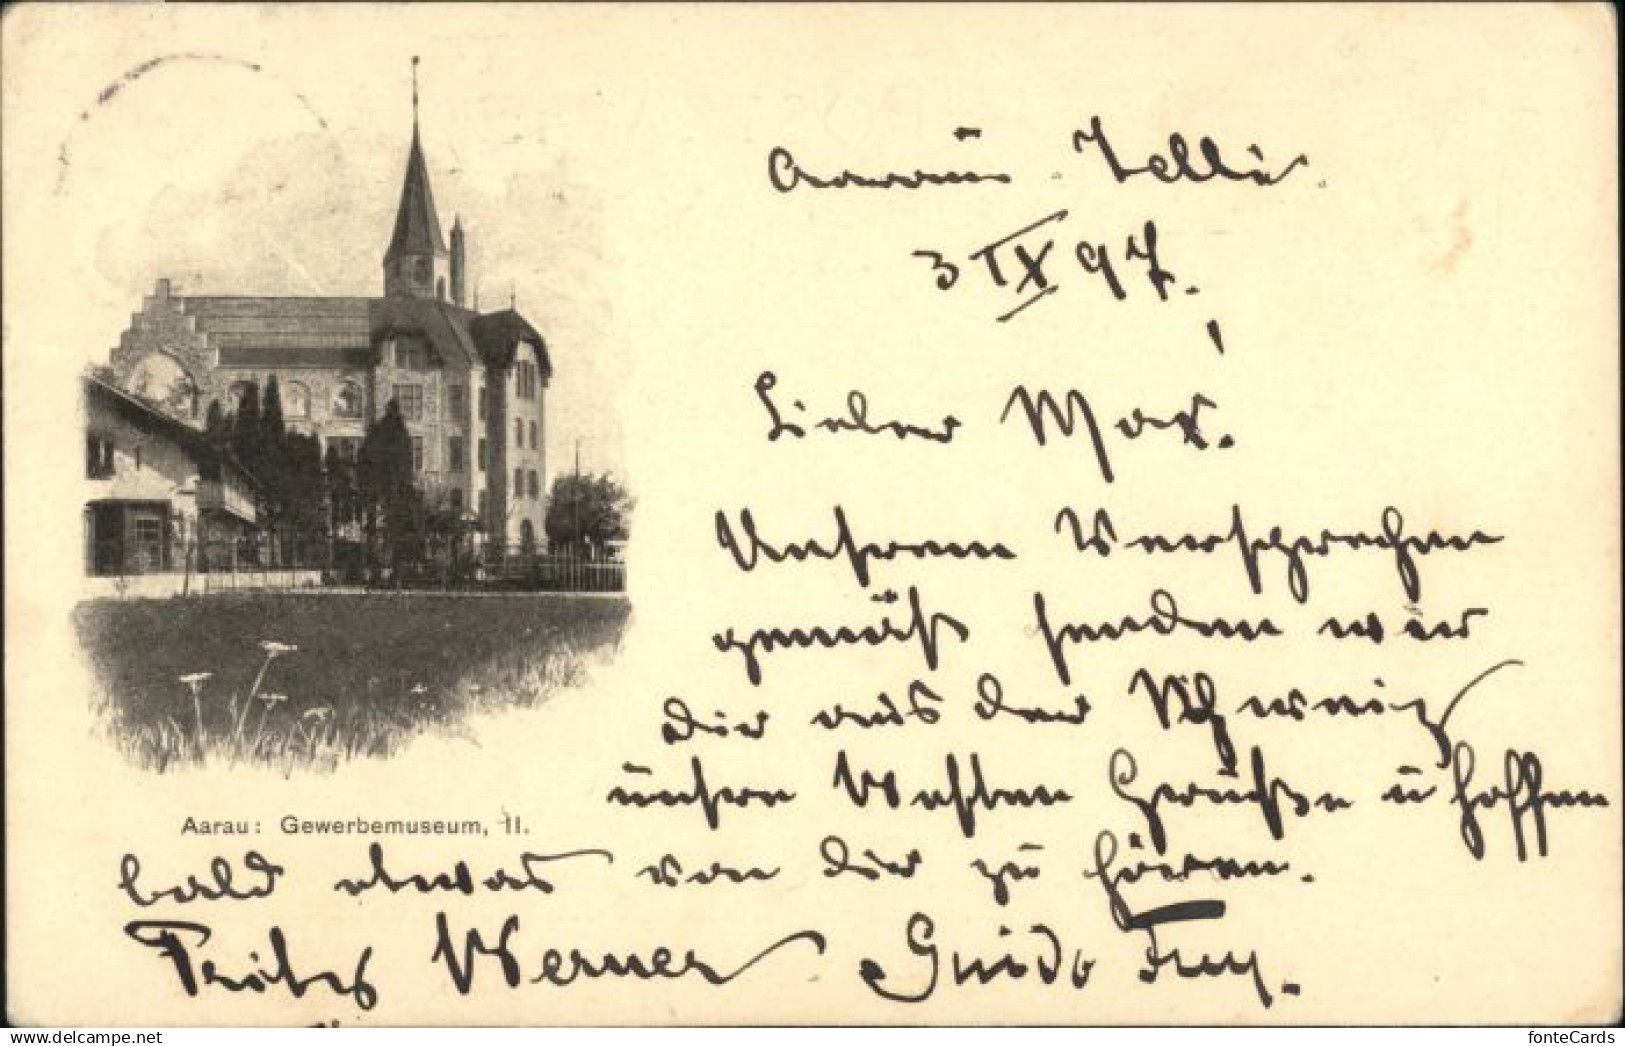 Aarau. Telli.
3 IX 97.
Lieber Max.!
Unserem Versprechen
gemäß senden wir
Dir aus der Schweiz
unsre besten Grüße u hoffen
Aarau: Gewerbemuseum, II.
bald etwas von Dir zu hören.
Werner Guido Frey.
fonteCards
delcampe.net